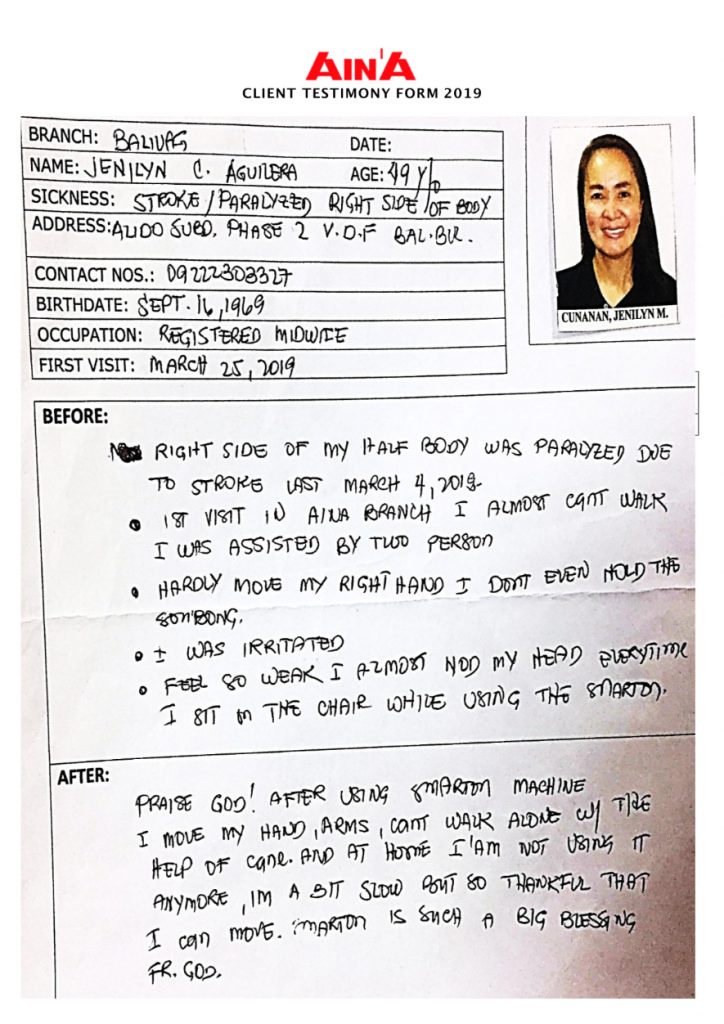 AIN'A
CLIENT TESTIMONY FORM 2019
BRANCH: BALIUAG DATE:
NAME: JENILYN C. AGUILERA AGE: 49 y/o
SICKNESS: STROKE / PARALYZED RIGHT SIDE OF BODY
ADDRESS: ALIDO SUBD. PHASE 2 V.D.F BAL. BUL.
CONTACT NOS.: 09222303327
BIRTHDATE: SEPT. 16, 1969
OCCUPATION: REGISTERED MIDWIFE
FIRST VISIT: MARCH 25, 2019
CUNANAN, JENILYN M.
BEFORE:
RIGHT SIDE OF MY HALF BODY WAS PARALYZED DUE
TO STROKE LAST MARCH 4, 2019
• 1ST VISIT IN AINA BRANCH I ALMOST CANT WALK
I WAS ASSISTED BY TWO PERSON
• HARDLY MOVE MY RIGHT HAND I DONT EVEN HOLD THE
• I WAS IRRITATED
• FEEL SO WEAK I ALMOST NOD MY HEAD EVERYTIME
I SIT IN THE CHAIR WHILE USING THE SMARTON.
AFTER:
PRAISE GOD! AFTER USING SMARTON MACHINE
I MOVE MY HAND, ARMS, CANT WALK ALONE W/ THE
HELP OF CANE. AND AT HOME I'AM NOT USING IT
ANYMORE, IM A BIT SLOW BUT SO THANKFUL THAT
I CAN MOVE. SMARTON IS SUCH A BIG BLESSING
FR. GOD.